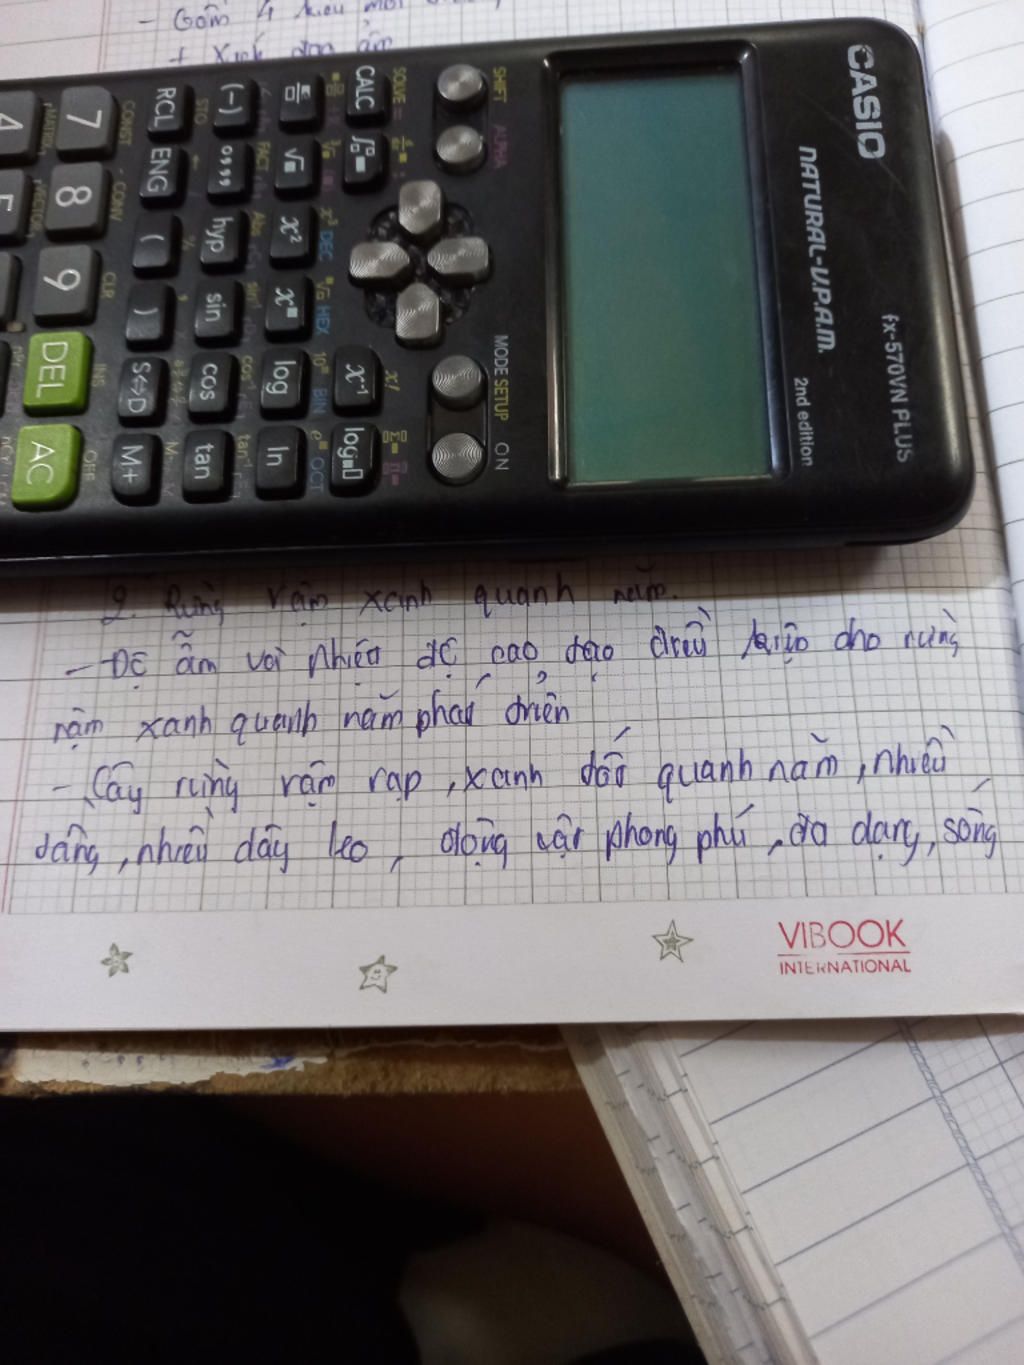 - Gồm 4 kiểu môi
CASIO
NATURAL-V.P.A.M.
fx-570VN PLUS
2nd edition
SHIFT ALPHA MODE SETUP ON
SOLVE = CALC x! x⁻¹ log
x³ DEC HEX 10 BIN e OCT
x² log ln
FACT Abs sin⁻¹ cos⁻¹ tan⁻¹
(-) hyp sin cos tan
STO
RCL ENG ( ) S⇔D M+
CONST CONV CLR INS OFF
7 8 9 DEL AC
MATRIX VECTOR
4 5
2. Rừng rậm xanh quanh năm.
- Độ ẩm với nhiệt độ cao tạo điều kiện cho rừng
rậm xanh quanh năm phát triển
- Cây rừng rậm rạp, xanh tốt quanh năm, nhiều
tầng, nhiều dây leo, động vật phong phú, đa dạng, sống
VIBOOK
INTERNATIONAL